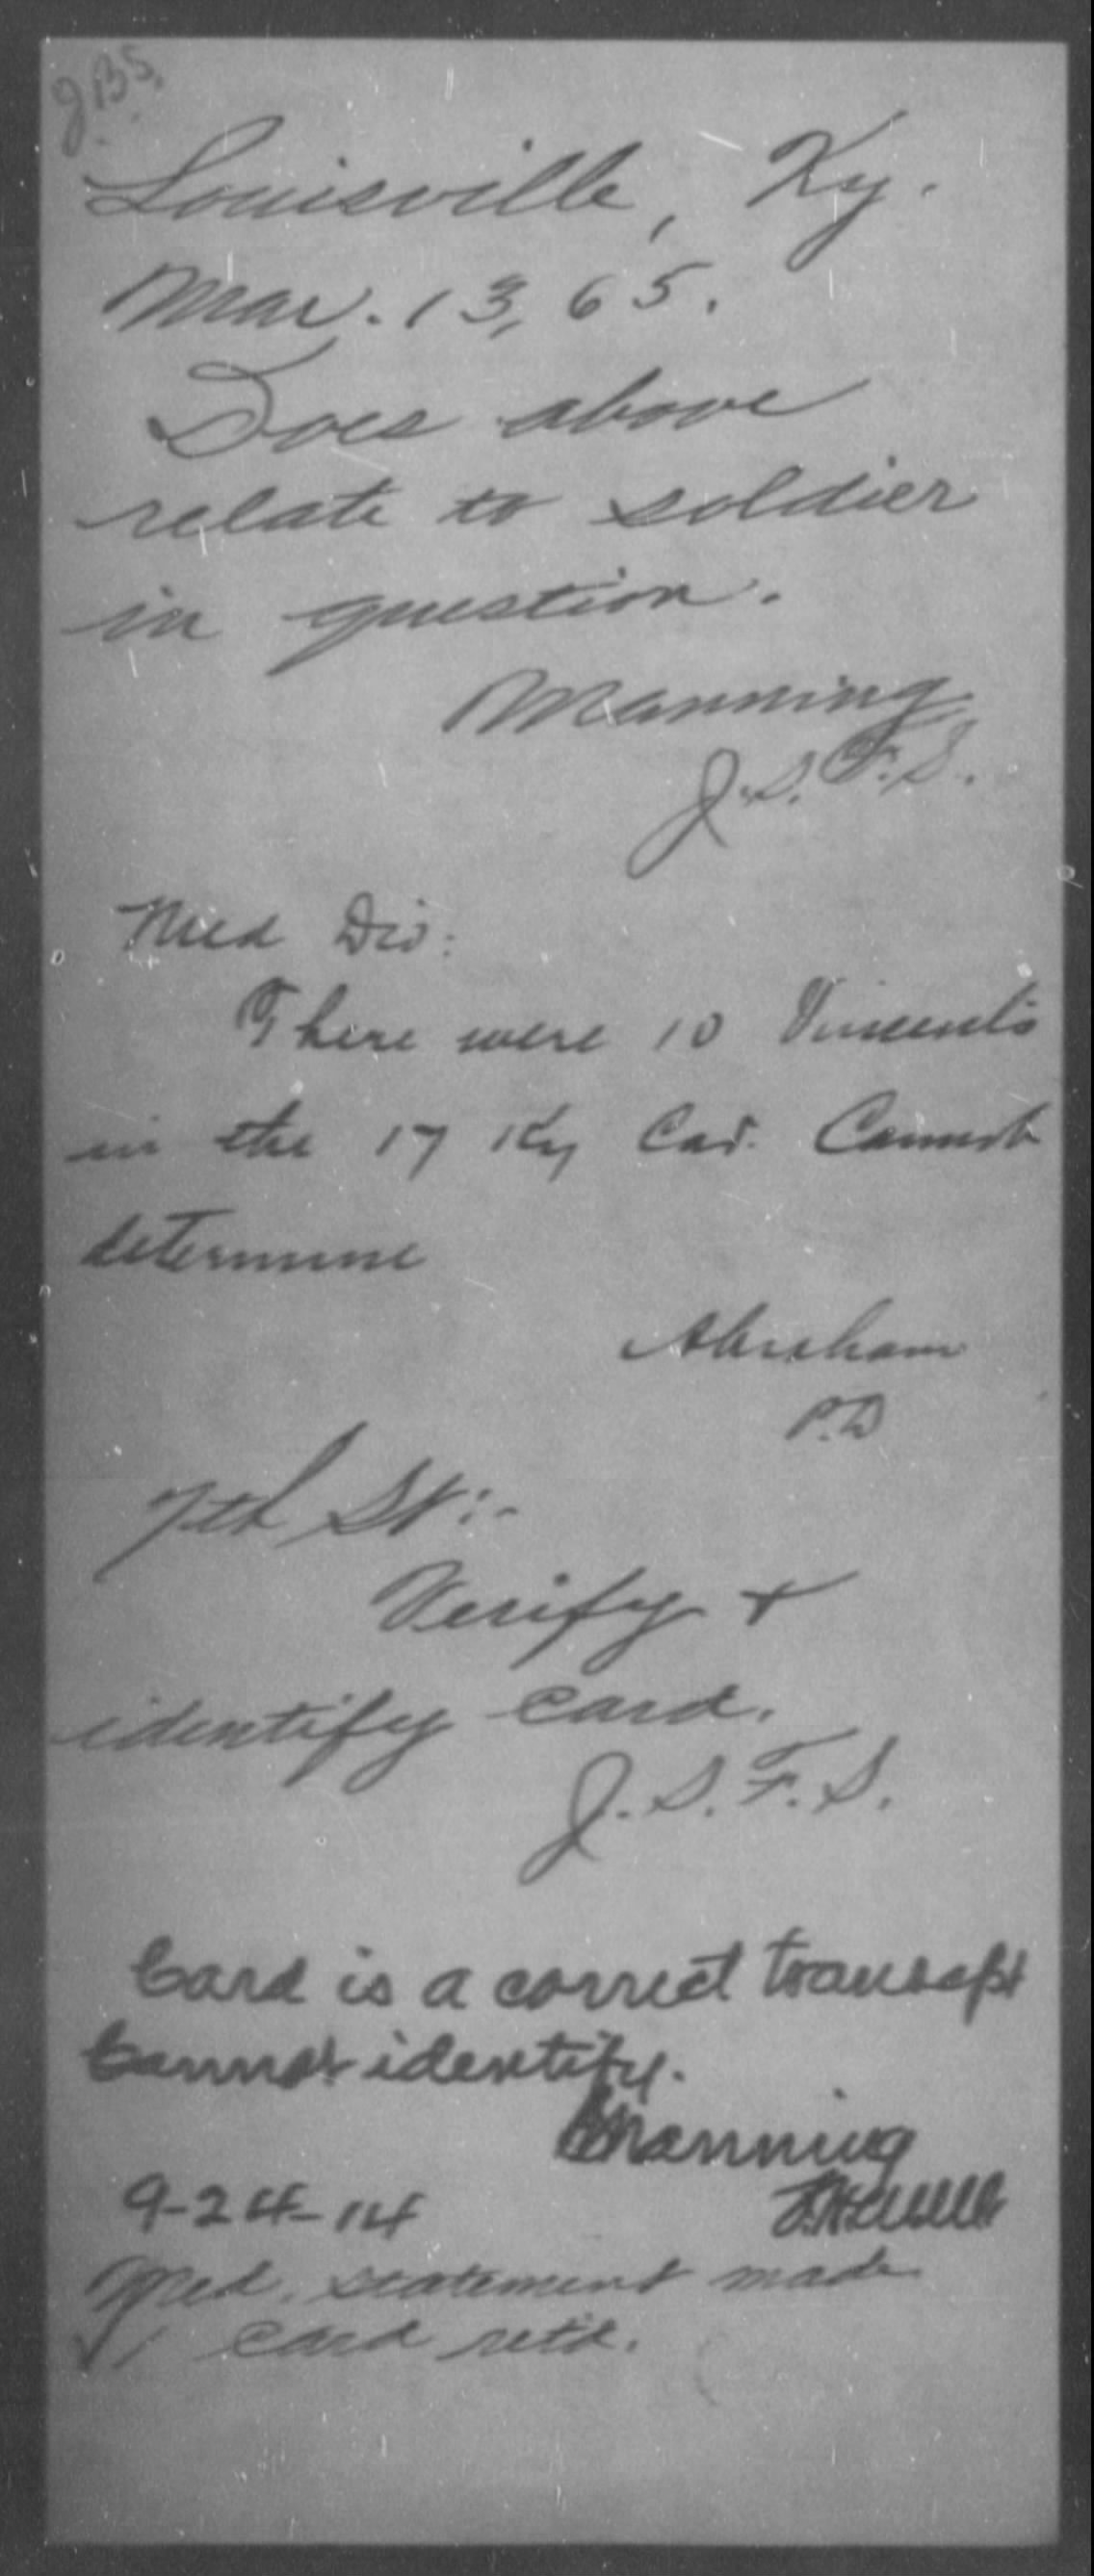 J.B.S.
Louisville, Ky.
Mar. 13, 65.
Does above
relate to soldier
in question.
Manning
J.S.F.S.
Med Div:
There were 10 Vincents
in the 17 Ky Cav. Cannot
determine
Abraham
P.D
7th St:-
Verify +
identify card.
J.S.F.S.
Card is a correct transcpt
Cannot identify.
Manning
9-24-14
Med. statement made
card retd.